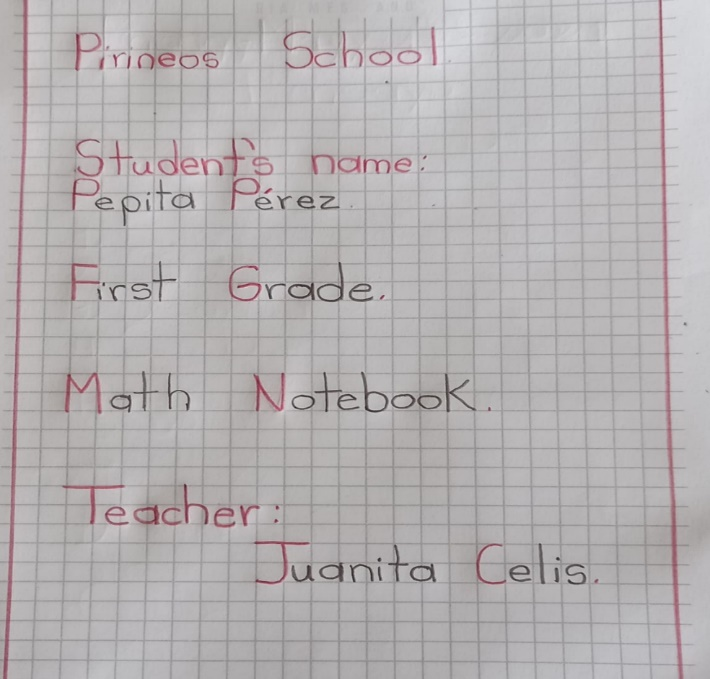 Pirineos School
Student's name:
Pepita Pérez.
First Grade.
Math Notebook.
Teacher:
Juanita Celis.